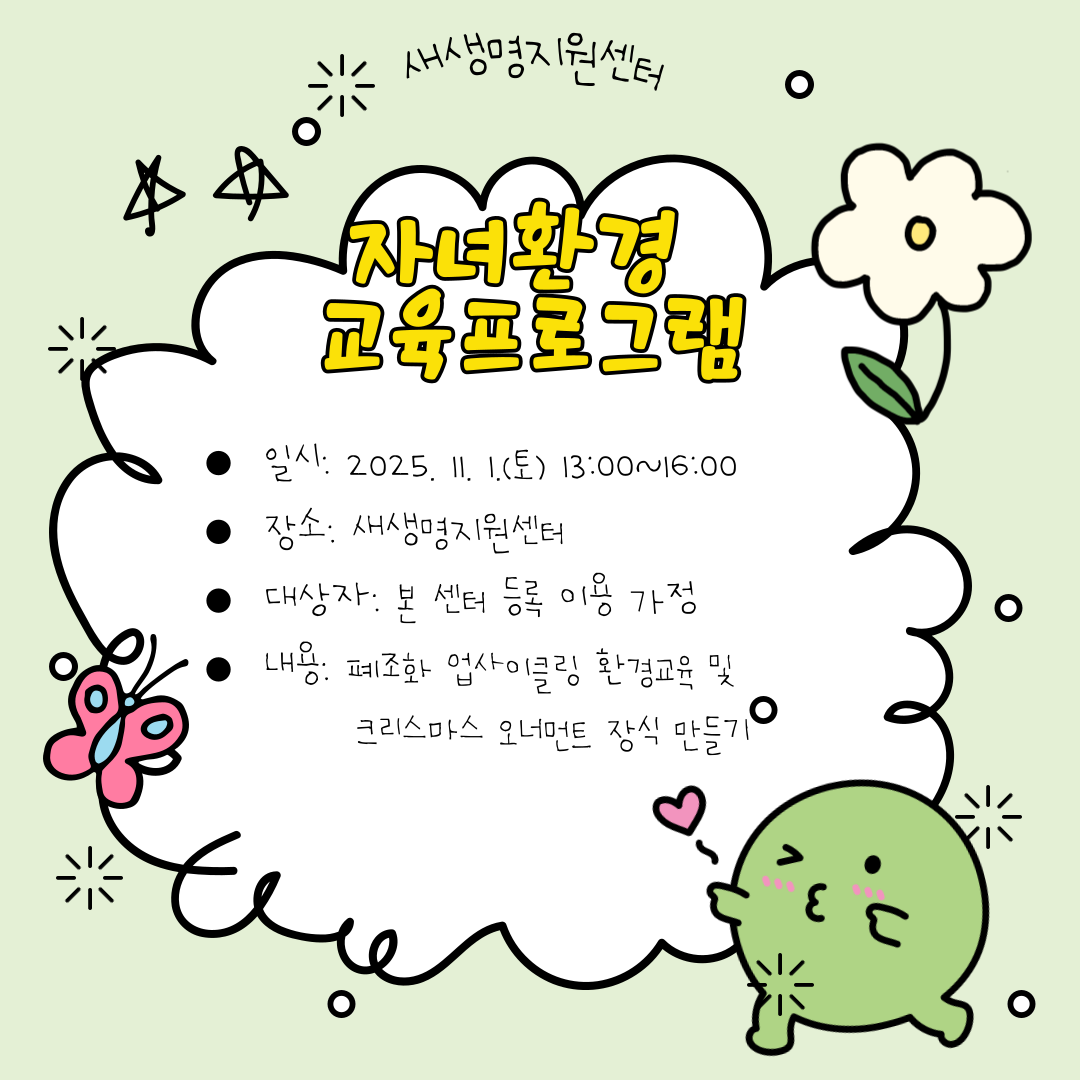 새생명지원센터
자녀환경
교육프로그램
● 일시: 2025. 11. 1.(토) 13:00~16:00
● 장소: 새생명지원센터
● 대상자: 본 센터 등록 이용 가정
● 내용: 폐조화 업사이클링 환경교육 및
크리스마스 오너먼트 장식 만들기